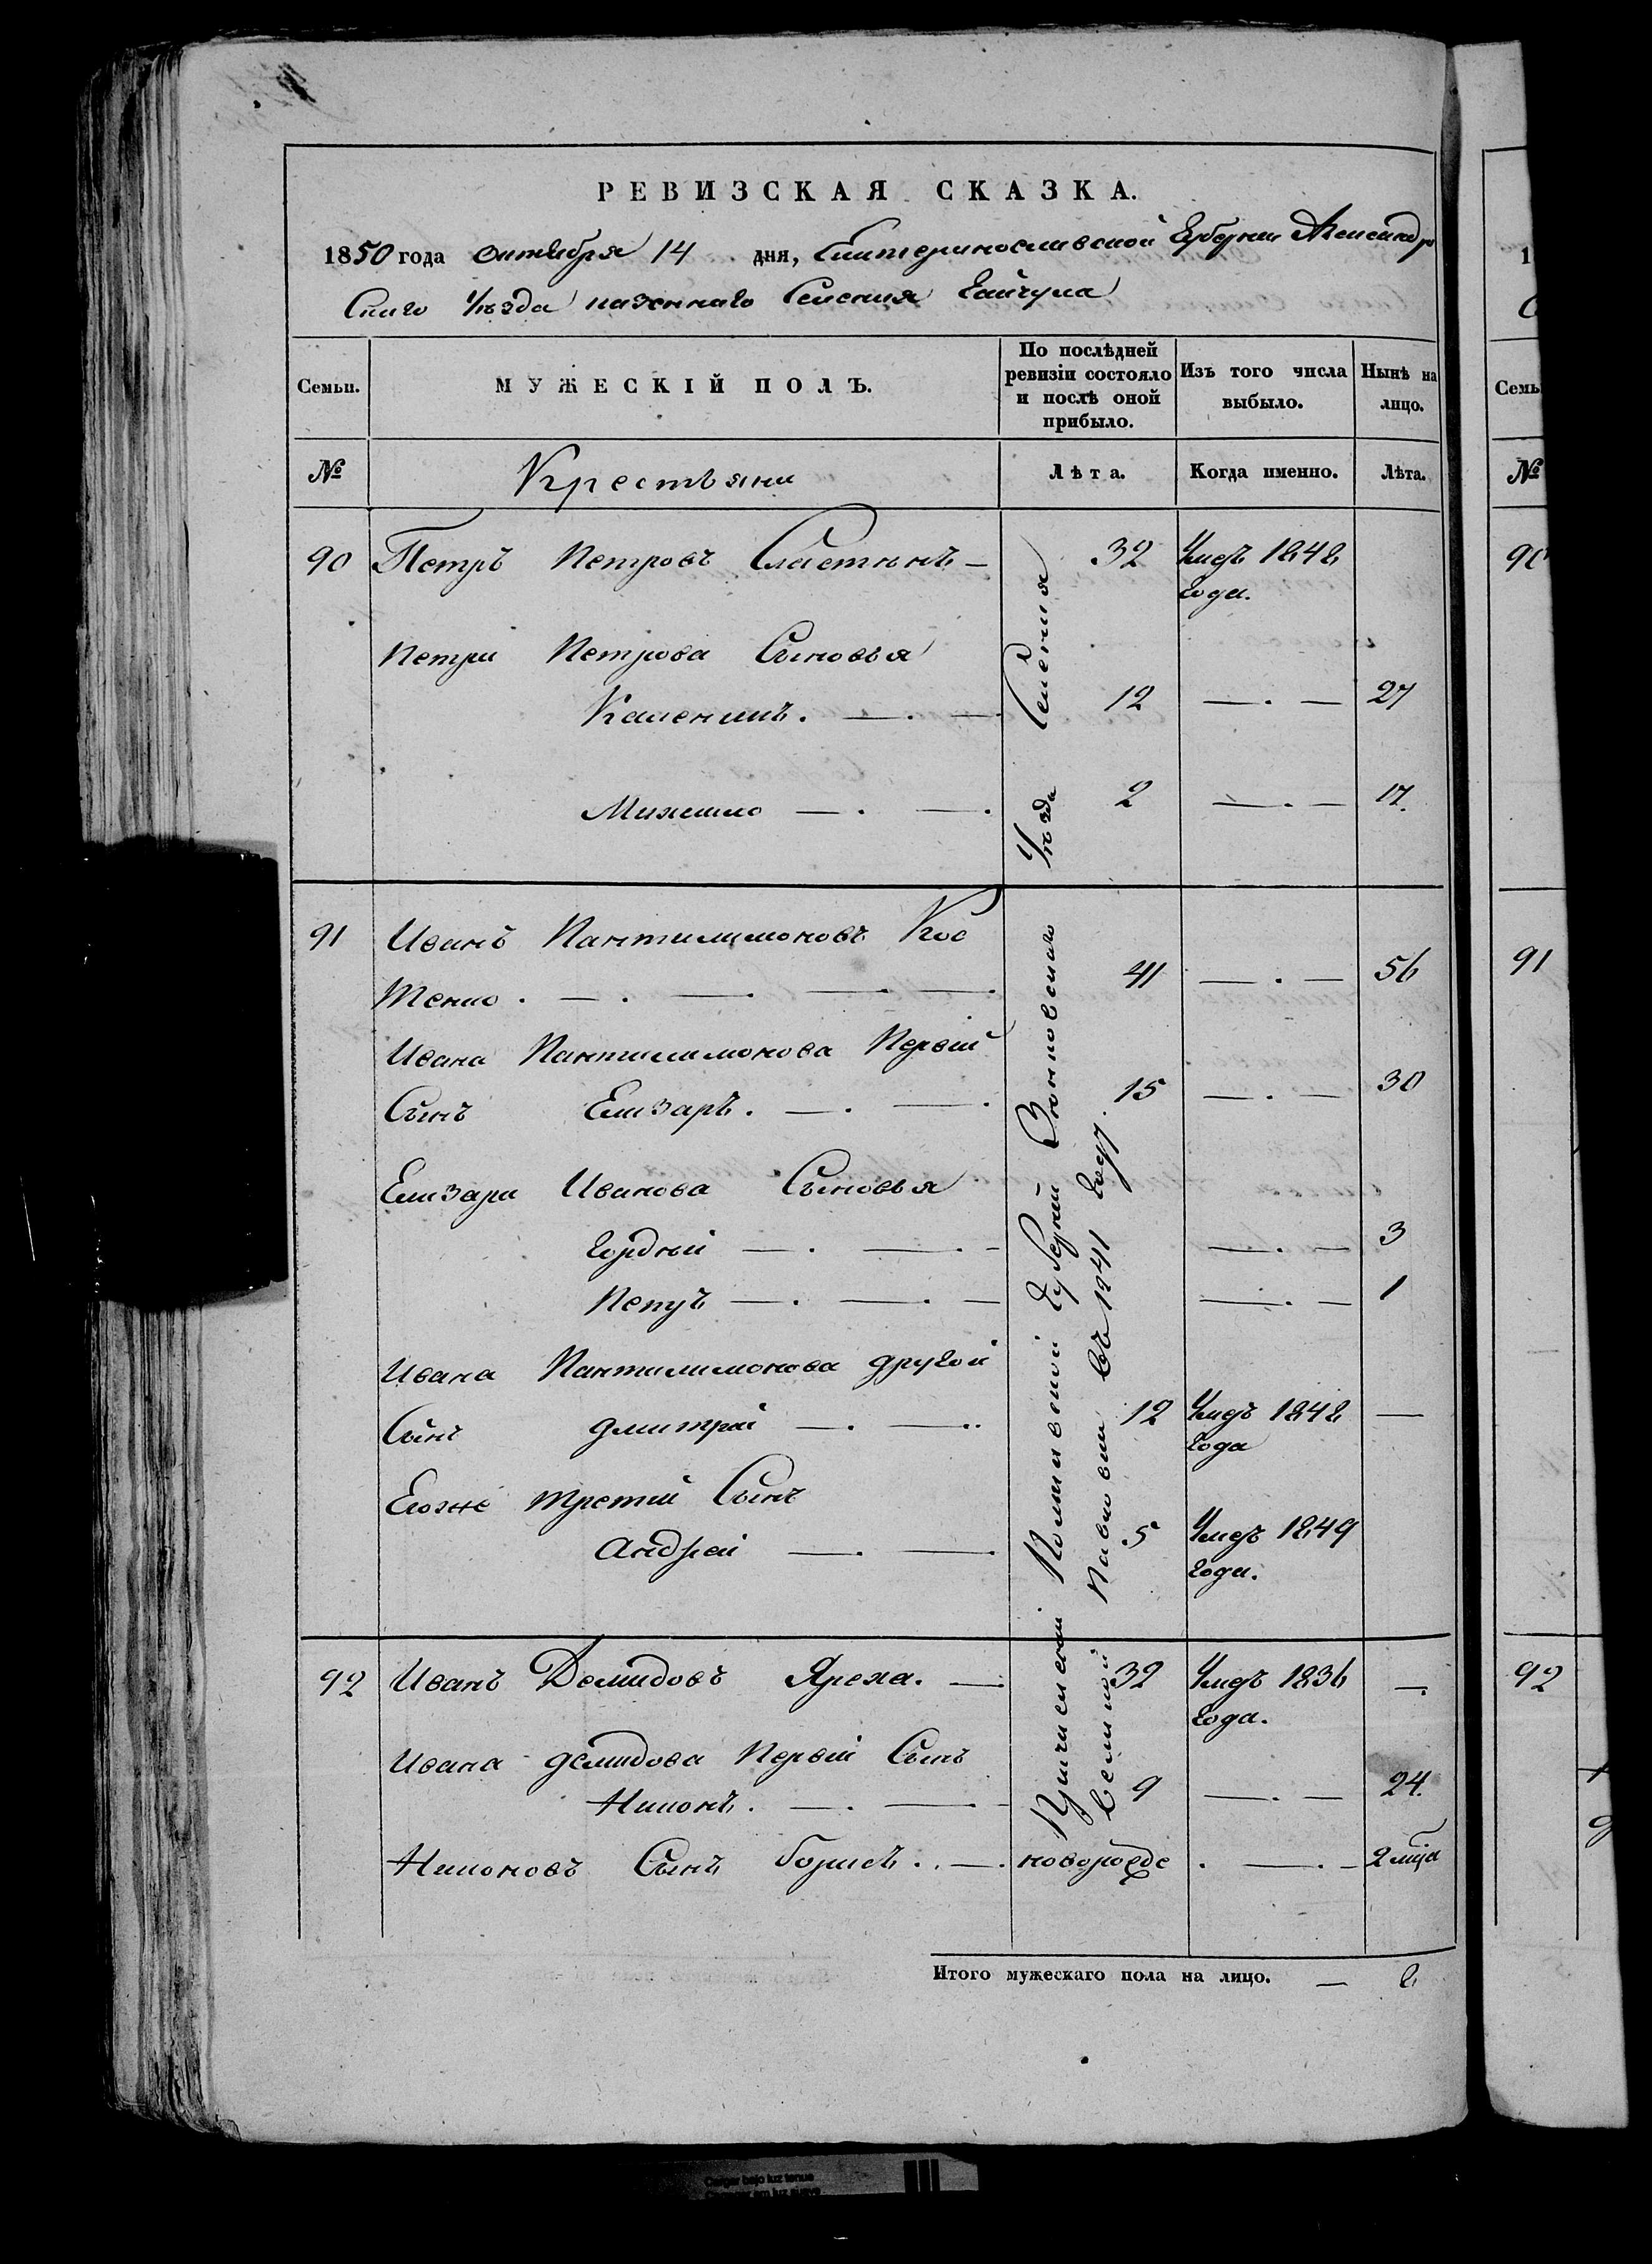 РЕВИЗСКАЯ СКАЗКА.
1850 года октября 14 дня, Екатеринославской Губернии Александро
Скаго Уѣзда казеннаго Селения Гайчула
Семьи.
МУЖЕСКІЙ ПОЛЪ.
По послѣдней ревизіи состояло и послѣ оной прибыло.
Изъ того числа выбыло.
Нынѣ на лицо.
№
Крестьяни
Лѣта.
Когда именно.
Лѣта.
90 Петръ Петровъ 32 Умеръ 1848
года.
Петра Петрова Сыновья
Каленикъ. 12 27
Михаило 2 17.
91 Иванъ Пантилимоновъ Кос
тенко. 41 56
Ивана Пантилимонова Первый
Сынъ Елизаръ. 15 30
Елизара Иванова Сыновья
Гордѣй 3
1
Ивана Пантилимонова другой
Сынъ дмитрій 12 Умеръ 1848
года
Егоже третій Сынъ
андрей 5 Умеръ 1849
года.
92 Иванъ Демидовъ Яреха. 32 Умеръ 1836
года.
Ивана демидова Первый Сынъ
Никонъ. 9 24.
Никоновъ Сынъ борисъ. новорожде 2 мца
Полтавской Губерніи Зѣньковскаго Уѣзда Селения
въ 1841 году.
Итого мужескаго пола на лицо. 8
Семь
№
90
91
92